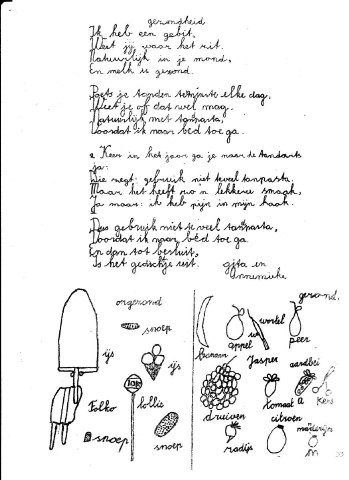 gezondheid
Ik heb een gebit,
Weet jij waar het zit.
Natuurlijk in je mond,
En melk is gezond.
Poets je tanden elke dag,
Weet je of dat wel mag.
Natuurlijk met tanpasta,
Voordat ik naar bed toe ga.
2 Keer in het jaar ga je naar de tandarts
ja:
Die zegt: gebruik niet te veel tanpasta.
Maar het heeft zo'n lekkere smaak,
Ja maar: ik heb pijn in mijn kaak.
Dus gebruik niet te veel tanpasta,
Voordat ik naar bed toe ga.
En dan tot besluit,
Is het gedichtje uit.
gita en
Annemieke
ongezond
snoep
ijs
ijs
Folko
lollie
snoep
snoep
gezond.
banaan
appel
wortel
peer
Jasper
aardbei
druiven
tomaat
kers
radijs
citroen